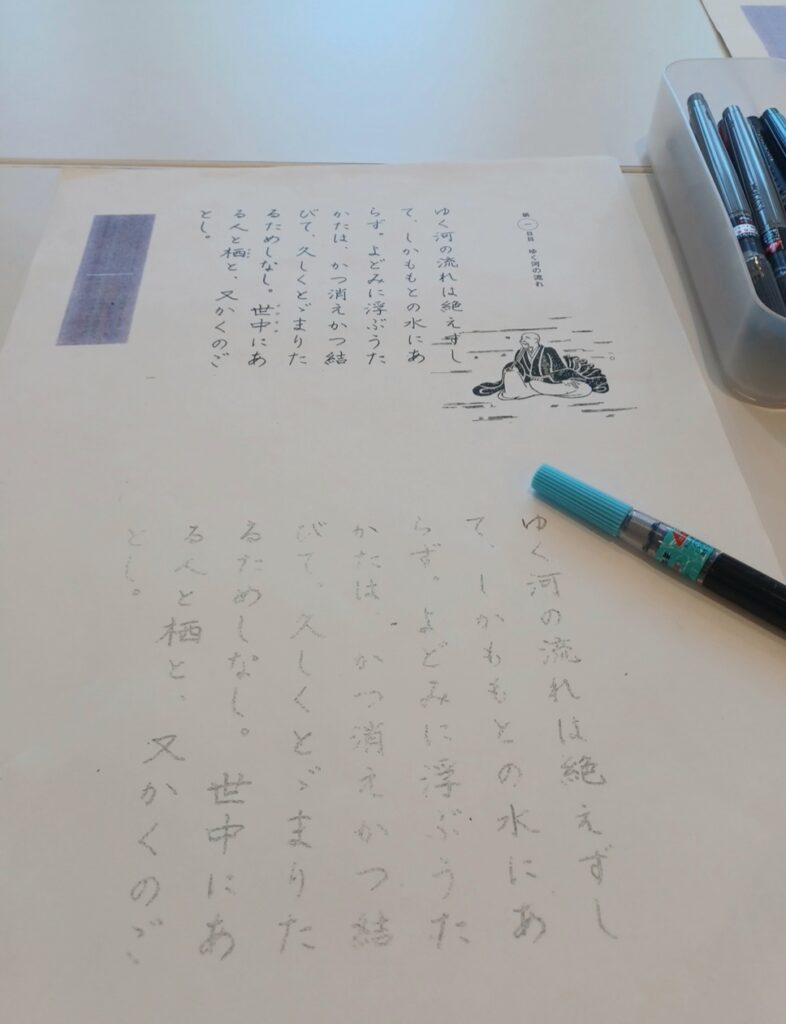 第一日目 ゆく河の流れ
ゆく河の流れは絶えずし
て、しかももとの水にあ
らず。よどみに浮ぶうた
かたは、かつ消えかつ結
びて、久しくとゞまりた
るためしなし。世中にあ
る人と栖と、又かくのご
とし。
ゆく河の流れは絶えずし
て、しかももとの水にあ
らず。よどみに浮ぶうた
かたは、かつ消えかつ結
びて、久しくとゞまりた
るためしなし。世中にあ
る人と栖と、又かくのご
とし。